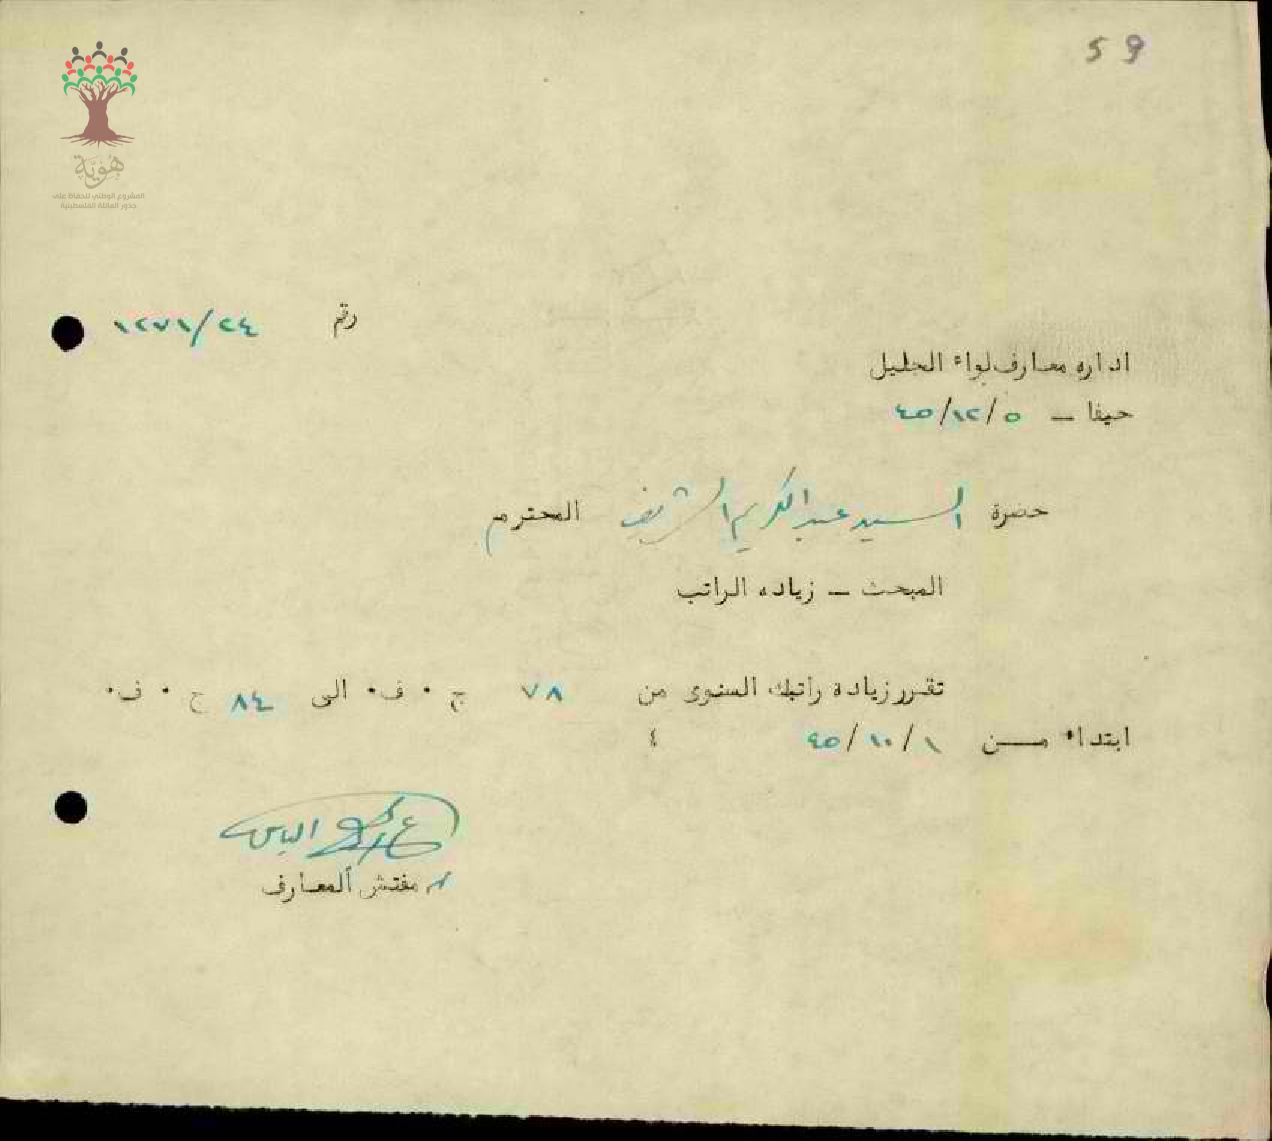 59
هوية
المشروع الوطني للحفاظ على
جذور العائلة الفلسطينية
رقم ١٢٧١/٢٤
اداره معارف لواء الجليل
حيفا – ٤٥/١٢/٥
حضرة السيد عبد الكريم الشريف المحترم
المبحث – زياده الراتب
تقرر زيادة راتبك السنوى من ٧٨ ج ٠ ف٠ الى ٨٤ ج ٠ ف٠
ابتداء من ٤٥/١٠/١
الياس
مفتش المعارف